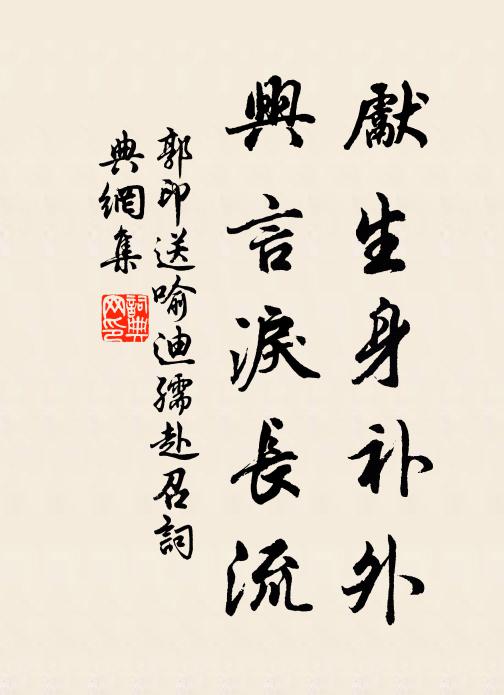 獻生身补外
興言淚長流
郭印送喻迪孺赴召詞
典網集
詞典网印